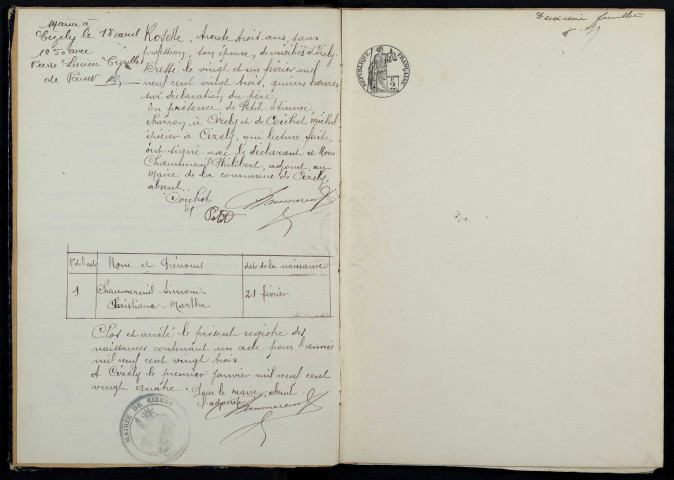 Mariée à
Cizely le 18 avril
1950 avec
Pierre Lucien Cyrille
de Paris
Rosette, trente trois ans, sans
profession, son épouse, domiciliés à Cizely.
Dressé le vingt et un février mil
neuf cent vingt trois, quinze heures
sur déclaration du père,
En présence de Petit Étienne,
charron, à Cizely et de Coichot Michel
épicier à Cizely, qui lecture faite,
ont signé avec le déclarant et Nous
Chaumereuil Philibert, adjoint au
Maire de la commune de Cizely,
absent.
Coichot
Petit
Chaumereuil
N° de l'acte Nom et Prénoms date de la naissance
1 Chaumereuil Simone 21 février
Christiane - Marthe
Clos et arrêté le présent registre des
naissances contenant un acte pour l'année
mil neuf cent vingt trois.
A Cizely le premier janvier mil neuf cent
vingt quatre. Pour le maire, absent
adjoint
Chaumereuil
MAIRIE DE CIZELY
Deuxième feuillet
RÉPUBLIQUE FRANÇAISE